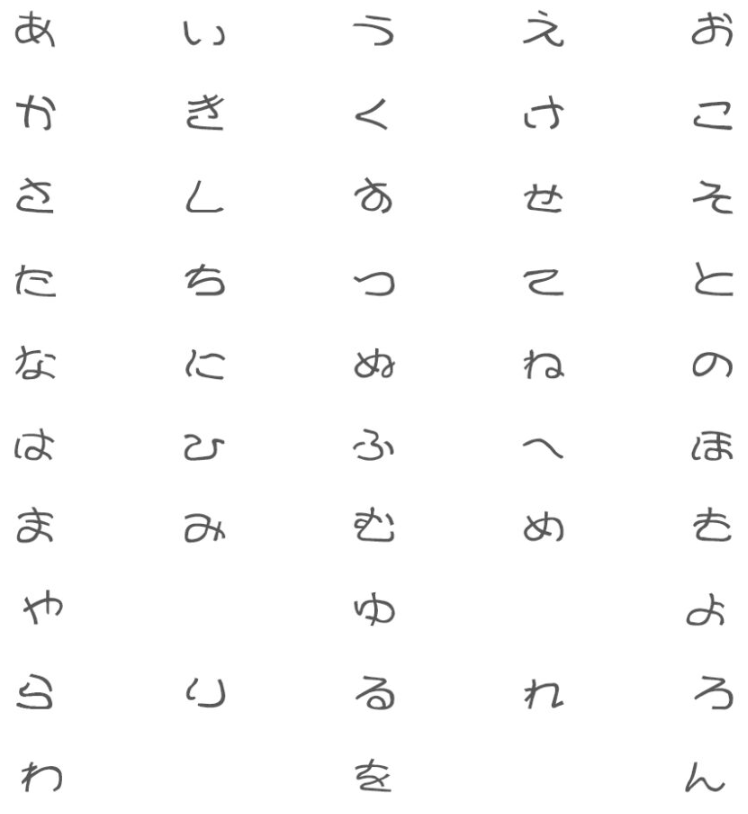 あ い う え お
か き く け こ
さ し す せ そ
た ち つ て と
な に ぬ ね の
は ひ ふ へ ほ
ま み む め も
や ゆ よ
ら り る れ ろ
わ を ん